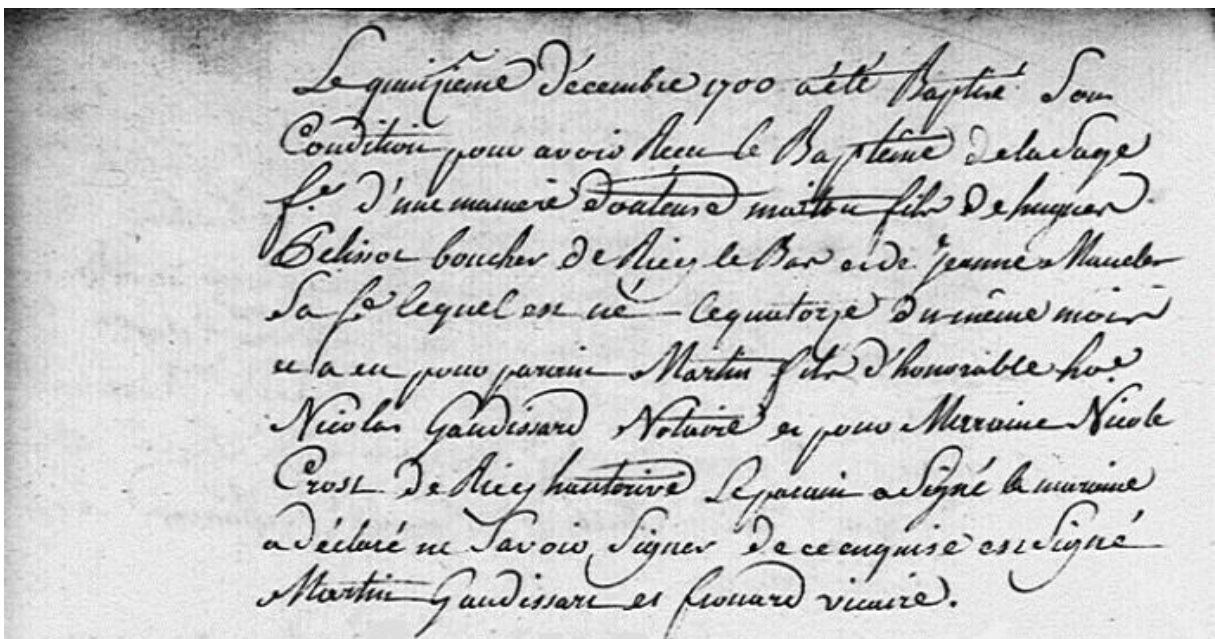 Le quinzieme décembre 1700 a été Baptisé Sous
Condition pour avoir Receu le Baptême de la Sage
f.e d'une maniere douteuse fils de hugues
Pelisot boucher de Ricey le Bas et de Jeanne
Sa f.e lequel est né le quatorze du même mois
et a eu pour parain Martin fils d'honorable ho.e
Nicolas Gaudissard Notaire et pour Marraine Nicole
Crost de Ricey hauterive Le parain a Signé la maraine
a déclaré ne Savoir Signer de ce enquise est Signé
Martin Gaudissart et frouard vicaire.